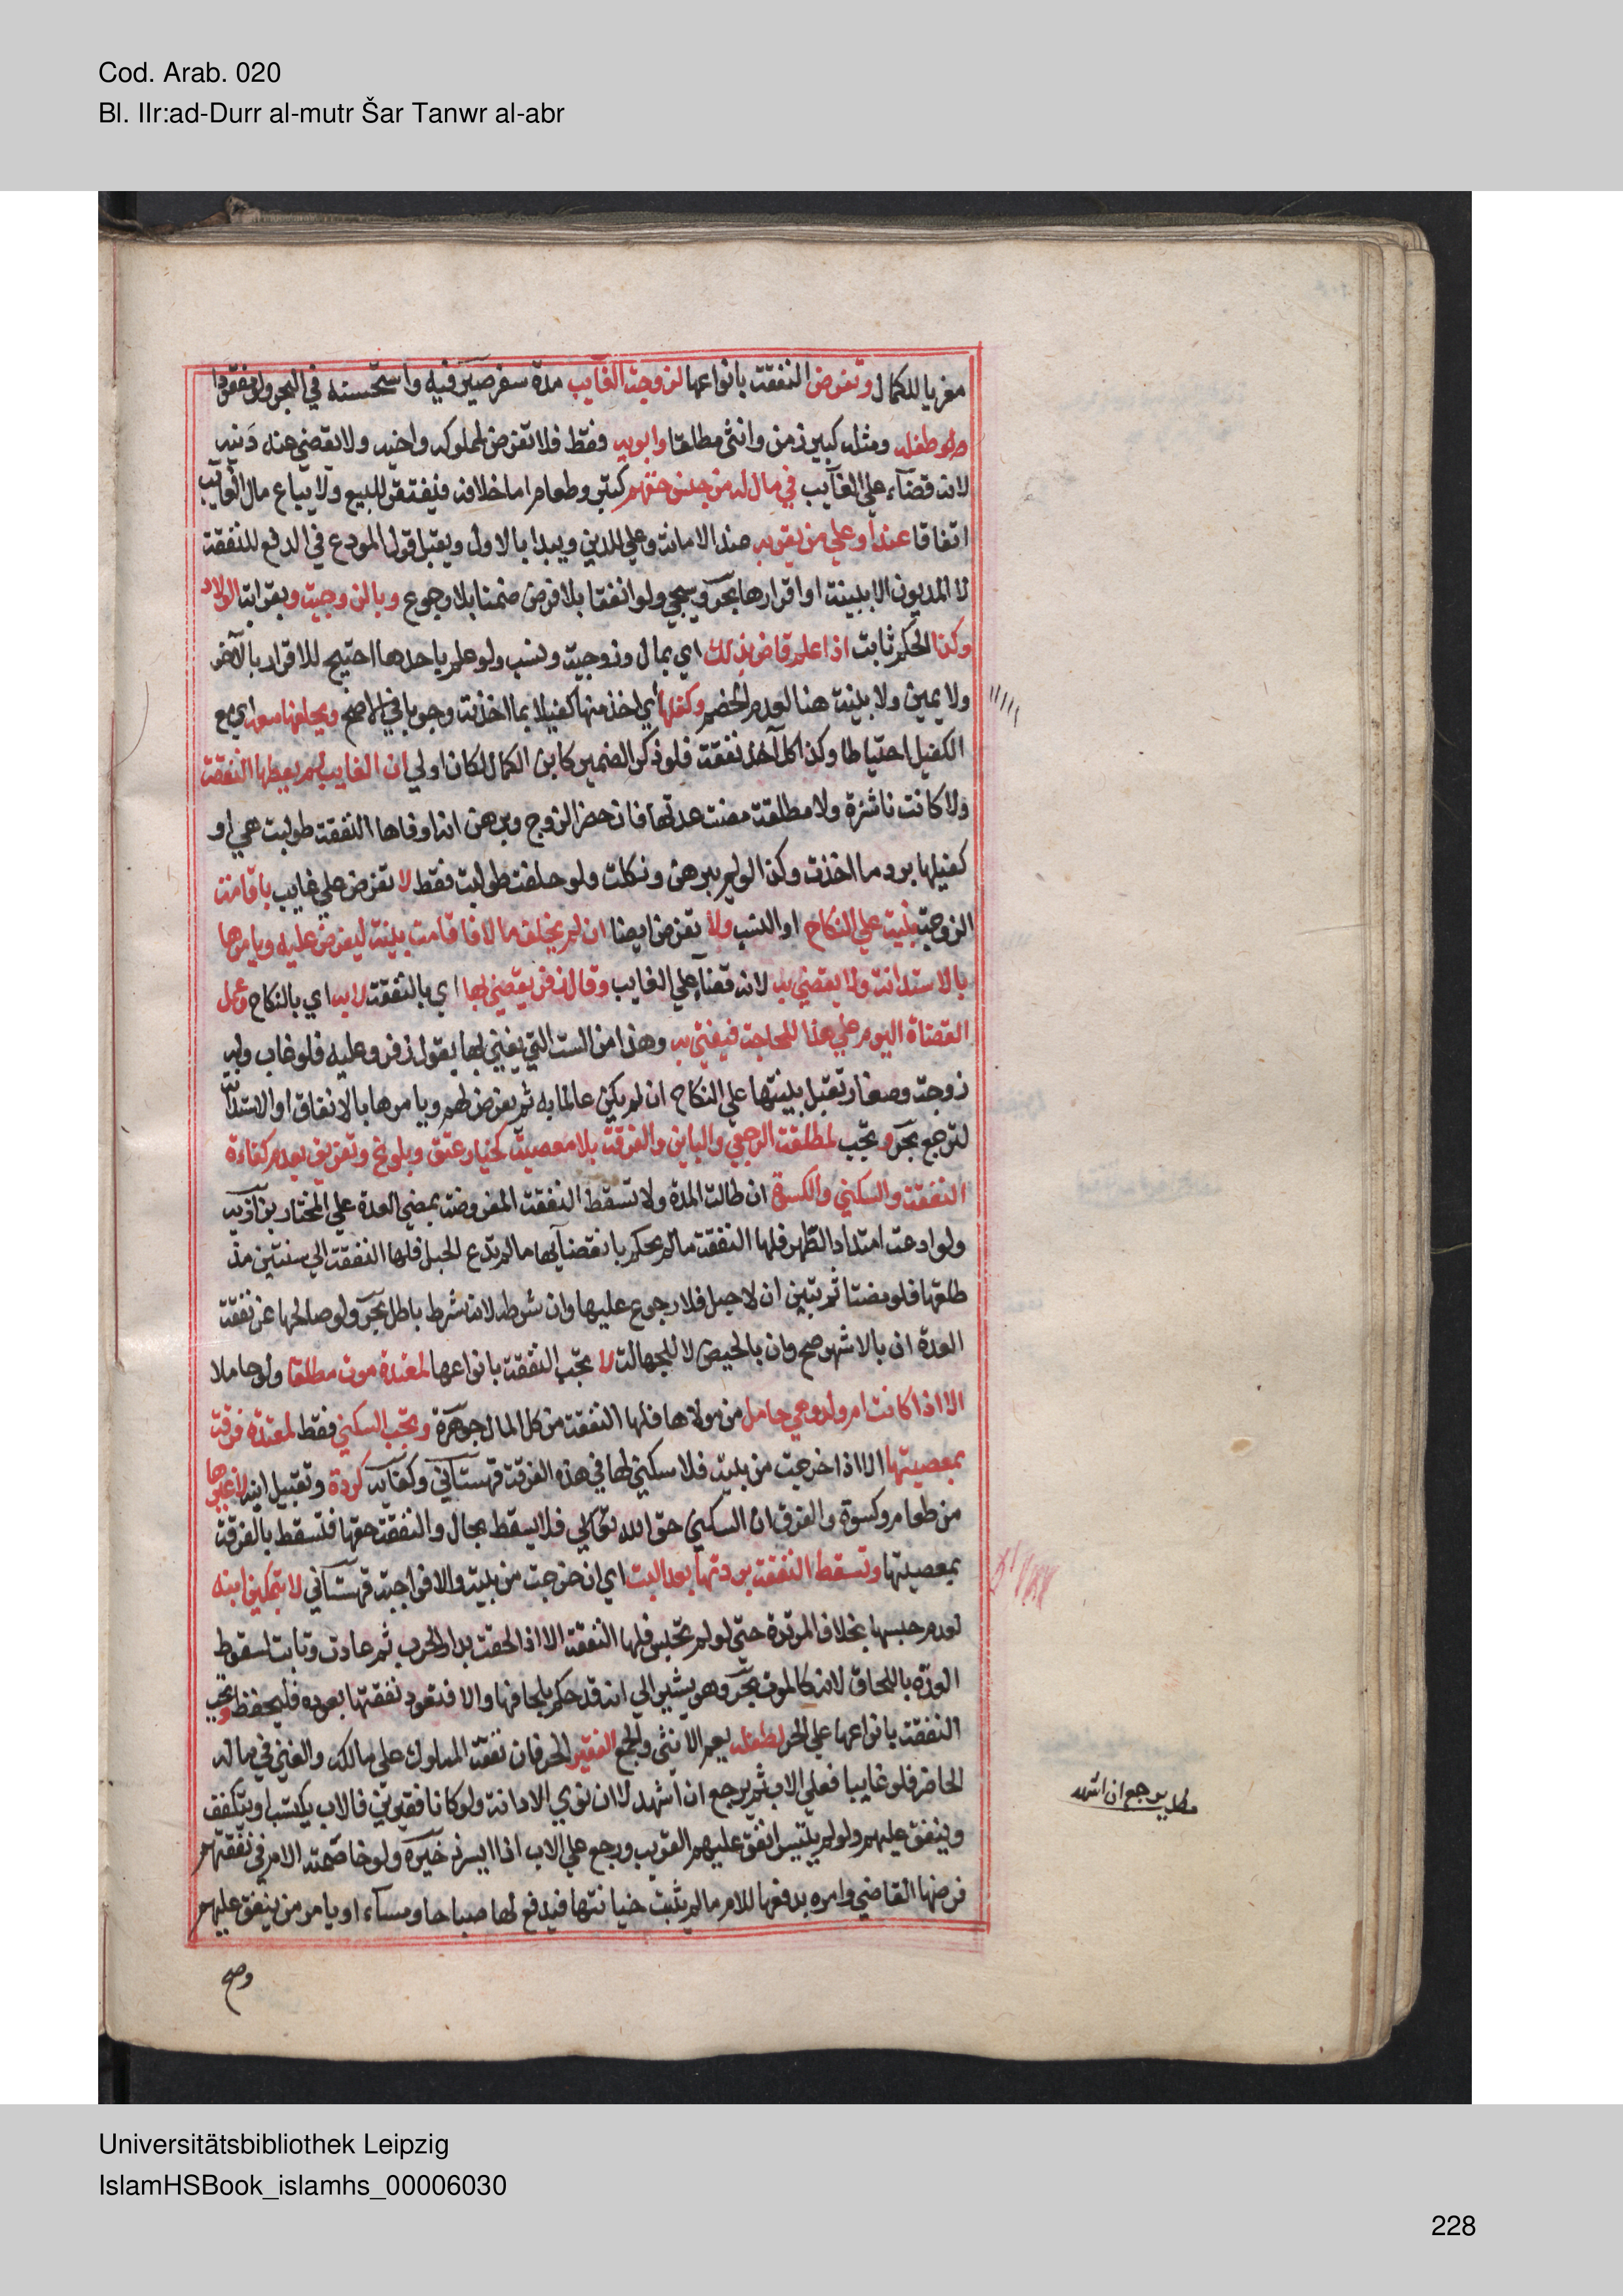 Cod. Arab. 020
Bl. IIr:ad-Durr al-mutr Šar Tanwr al-abr
معزيا للكمال وتفرض النفقة بانواعها لزوجة الغايب مدة سفر صيرفيه واستحسنه في البحر ولو مفقودا
وطفله ومثله كبير زمن وانثى مطلقا وابويه فقط فلا تفرض لمملوكه واخيه ولا يقضي عنه دينه
لانه قضآء علي الغآيب في مال له من جنس حقهم كتبر وطعام اما خلافه فيفتقر للبيع ولا يباع مال الغآيب
اتفاقا عند او علي من يقر به عند الامانة وعلي الدين ويبدا بالاول ويقبل قول المودع في الدفع للنفقة
لا المديون الا ببينة او اقرارها بحر وسيجي ولو انفقا بلا فرض ضمنا بلا رجوع وبالزوجية وبقرابة الولاد
وكذا الحكم ثابت اذا علم قاض بذلك اي بمال وزوجية ونسب ولو علم باحدها احتيج للاقرار بالآخر
ولا يمين ولا بينة هنا لعدم الخصم وكفلها اي اخذ منها كفيلا بما اخذته وجوبا في الاصح ويحلفها معه اي مع
الكفيل احتياطا وكذا كل آخذ نفقة فلو ذكر الضمير كابن الكمال لكان اولي ان الغايب لم يعطها النفقة
ولا كانت ناشزة ولا مطلقة مضت عدتها فان حضر الزوج وبرهن انه اوفاها النفقة طولبت هي او
كفيلها برد ما اخذت وكذا لو لم يبرهن ونكلت ولو حلفت طولبت فقط لا تفرض علي غايب باقامة
الزوجة بينة علي النكاح او النسب ولا تفرض ايضا ان لم يخلف مالا فاقامت بينة ليفرض عليه ويامرها
بالاستدانة ولا يقضي به لانه قضآء علي الغايب وقال زفر يقضي بها اي بالنفقة لا به اي بالنكاح وعمل
القضاة اليوم علي هذا للحاجة فيفتي به وهذا من الست التي يفتي بها بقول زفر وعليه فلو غاب وله
زوجة وصغار تقبل بينتها علي النكاح ان لم يكن عالما به ثم يفرض لهم ويامرها بالانفاق او الاستدآنة
لترجع بحر وتجب لمطلقة الرجعي والباين والفرقة بلا معصية كخيار عتق وبلوغ وتفريق بعدم كفاءة
النفقة والسكني والكسوة ان طالت المدة ولا تسقط النفقة المفروضة بمضي العدة علي المختار بزازية
ولو ادعت امتداد الطهر فلها النفقة ما لم يحكم بانقضآئها ما لم تدع الحبل فلها النفقة الي سنتين منذ
طلقها فلو مضتا ثم تبين ان لا حبل فلا رجوع عليها وان شرطه لانه شرط باطل بحر ولو صالحها عن نفقة
العدة ان بالاشهر صح وان بالحيض لا للجهالة لا تجب النفقة بانواعها لمعتدة موت مطلقا ولو حاملا
الا اذا كانت ام ولد وهي حامل من مولاها فلها النفقة من كل المال جوهرة وتجب السكني فقط لمعتدة فرقة
بمعصيتها الا اذا خرجت من بيته فلا سكني لها في هذه الفرقة قهستآني وكفآية كردة وتقبيل ابنه لا غيرها
من طعام وكسوة والفرق ان السكني حق الله تعالي فلا يسقط بحال والنفقة حقها فتسقط بالفرقة
بمعصيتها وتسقط النفقة بردتها بعد البت اي ان خرجت من بيته والا فواجبة قهستآني لا بتمكين ابنه
لعدم حبسها بخلاف المرتدة حتى لو لم تحبس فلها النفقة الا اذا لحقت بدار الحرب ثم عادت وتابت لسقوط
العدة باللحاق لانه كالموت بحر وهو يشير الي انه قد حكم بلحاقها والا فتعود نفقتها بعوده فليحفظ وتجب
النفقة بانواعها علي الحر لطفله يعم الانثى والجمع الفقير الحر فان نفقة المملوك علي مالكه والغني في ماله
الحاضر فلو غايبا فعلي الاب ثم يرجع ان اشهد لا ان نوي الا ديانة ولو كانا فقيرين فالاب يكتسب او يتكفف
وينفق عليهم ولو لم يتيسر انفق عليهم القريب ورجع علي الاب اذا ايسر ذخيرة ولو خاصمته الام في نفقتهم
فرضها القاضي وامره بدفعها للام ما لم يثبت خيانتها فيدفع لها صباحا ومسآء او يامر من ينفق عليهم
مطلب يرجع ان اشهد
وصح
Universitätsbibliothek Leipzig
IslamHSBook_islamhs_00006030
228